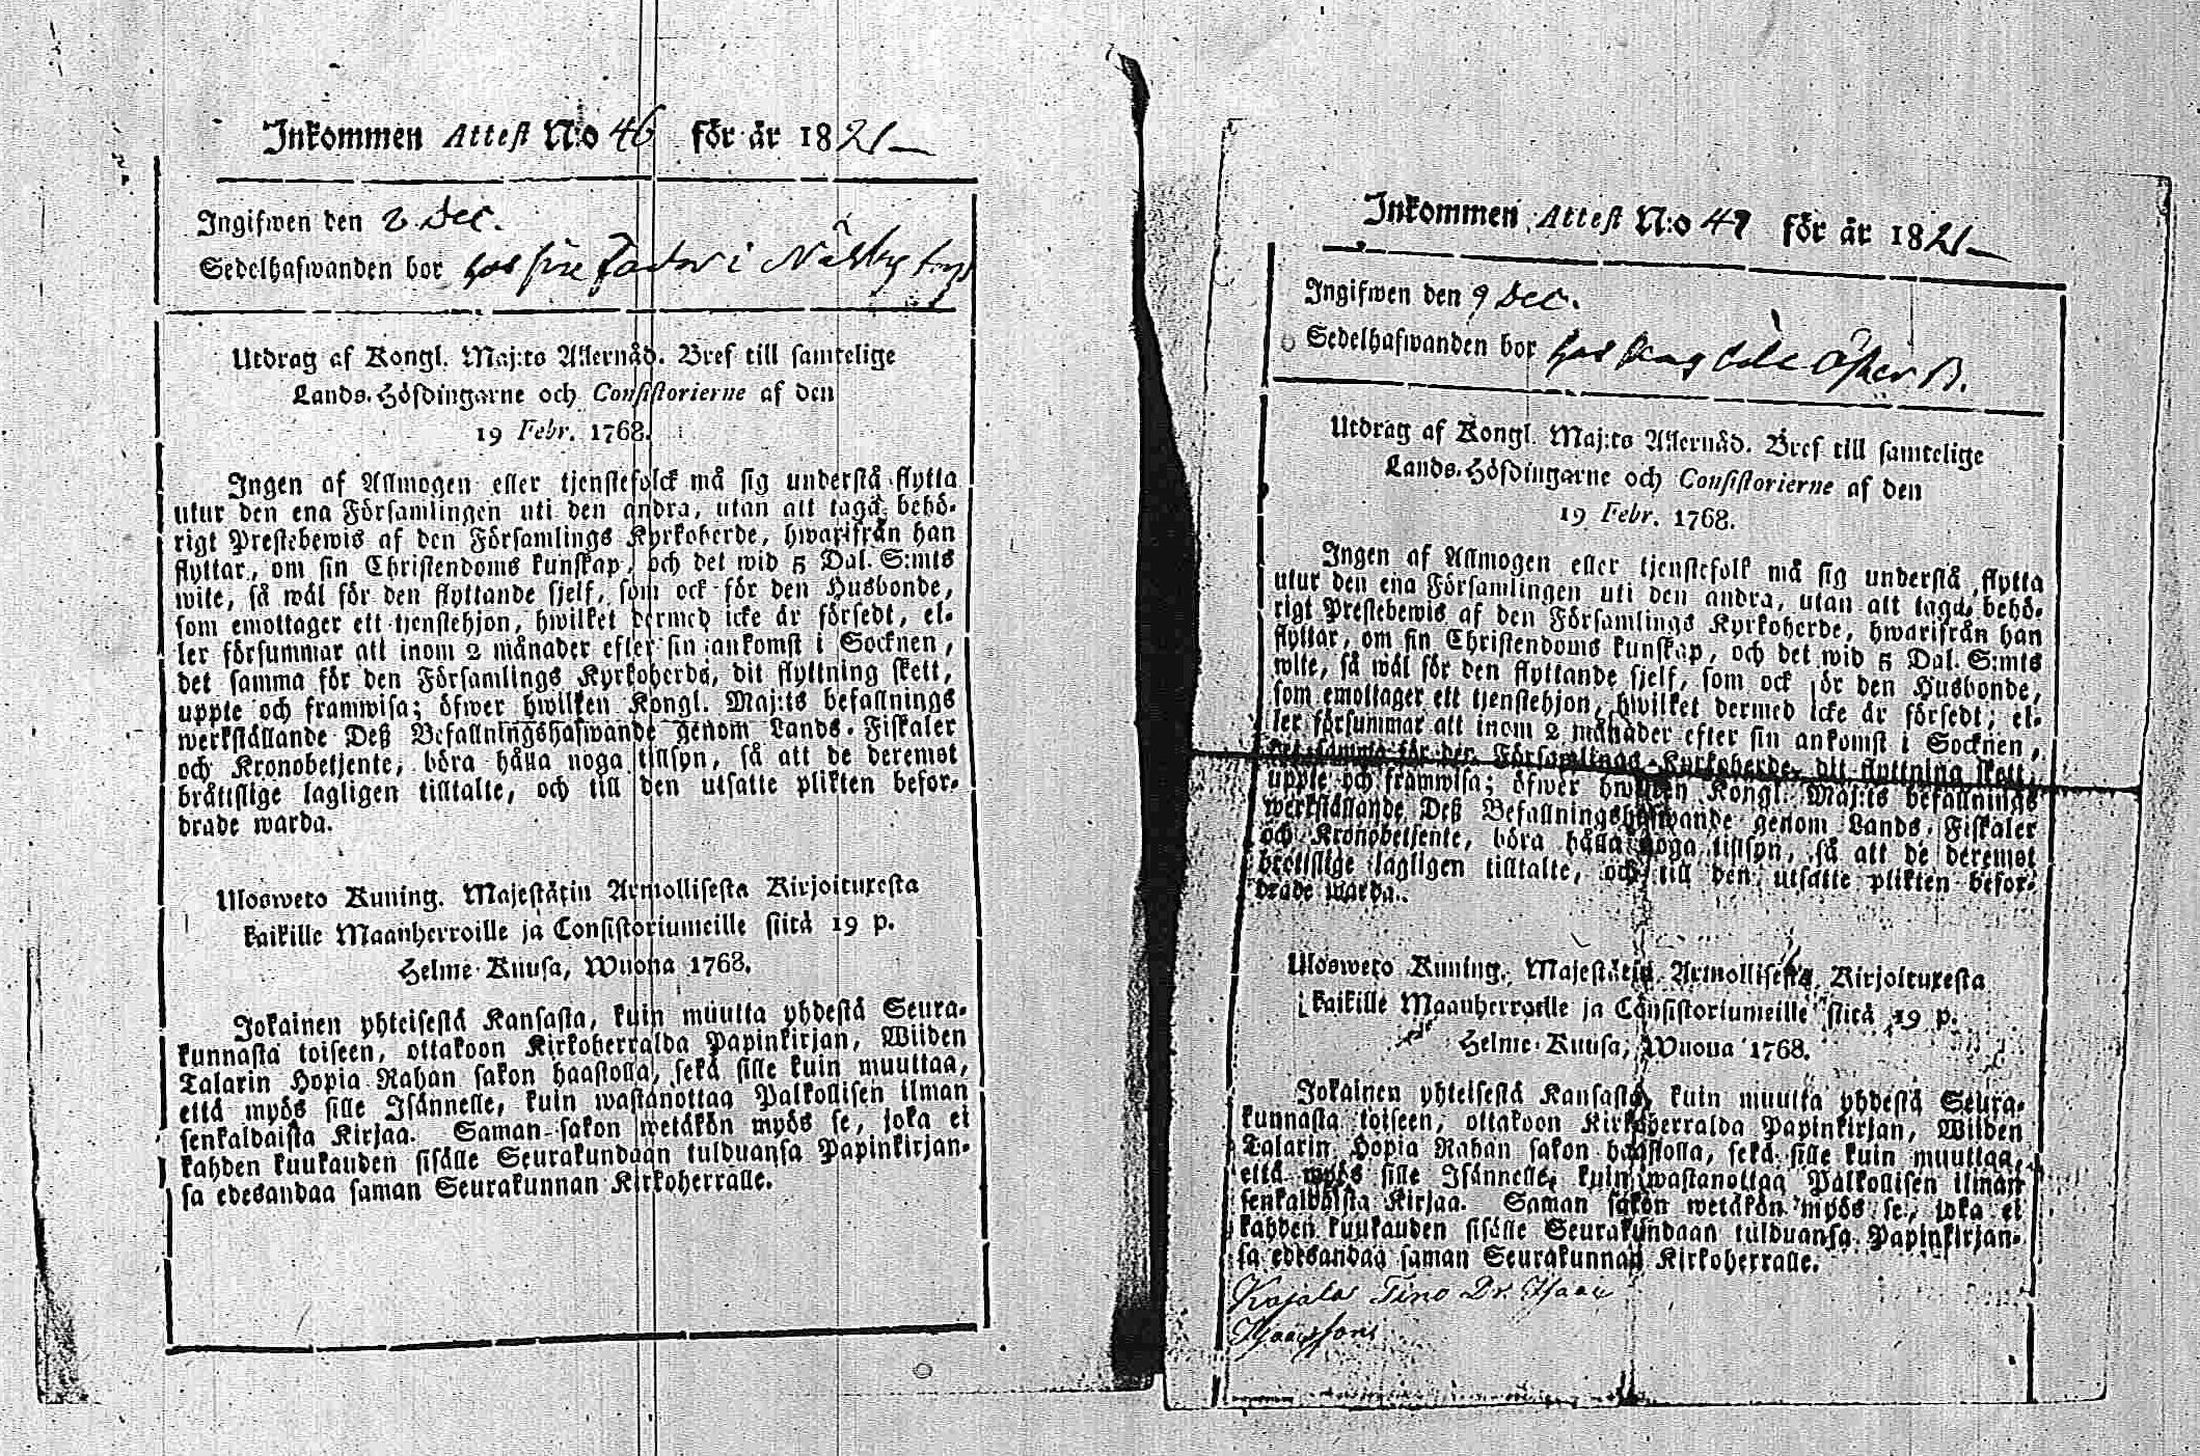 Inkommen Attest N:o 46 för år 1821
Ingifwen den 2 Dec.
Sedelhafwanden bor hos sin i
Utdrag af Kongl. Maj:ts Allernåd. Bref till samtelige
Lands-Höfdingarne och Consistorierne af den
19 Febr. 1768.
Ingen af Allmogen eller tjenstefolck må sig understå flytta
utur den ena Församlingen uti den andra, utan att taga behö-
rigt Prestebewis af den Församlings Kyrkoherde, hwarifrån han
flyttar, om sin Christendoms kunskap, och det wid 5 Dal. S:mts
wite, så wäl för den flyttande sjelf, som ock för den Husbonde,
som emottager ett tjenstehjon, hwilket dermed icke är försedt, el-
ler försummar att inom 2 månader efter sin ankomst i Socknen,
det samma för den Församlings Kyrkoherde, dit flyttning skett,
uppte och framwisa; öfwer hwilken Kongl. Maj:ts befallnings
werkställande Deß Befallningshafwande genom Lands-Fiskaler
och Kronobetjente, böra hålla noga tillsyn, så att de deremot
bråttslige lagligen tilltalte, och till den utsatte plikten befor-
drade warda.
Ulosweto Kuning. Majestätin Armollisesta Kirjoituxesta
kaikille Maanherroille ja Consistoriumeille siitä 19 p.
Helme-Kuusa, Wuona 1768.
Jokainen yhteisestä Kansasta, kuin muutta yhdestä Seura-
kunnasta toiseen, ottakoon Kirkoherralda Papinkirjan, Wiiden
Talarin Hopia Rahan sakon haastolla, sekä sille kuin muuttaa,
että myös sille Isännelle, kuin wastanottaa Palkollisen ilman
senkaldaista Kirjaa. Saman sakon wetäkön myös se, joka ei
kahden kuukauden sisälle Seurakundaan tulduansa Papinkirjan-
sa edesandaa saman Seurakunnan Kirkoherralle.
Inkommen Attest N:o 47 för år 1821
Ingifwen den 9 Dec.
Sedelhafwanden bor hos
Utdrag af Kongl. Maj:ts Allernåd. Bref till samtelige
Lands-Höfdingarne och Consistorierne af den
19 Febr. 1768.
Ingen af Allmogen eller tjenstefolk må sig understå flytta
utur den ena Församlingen uti den andra, utan att taga behö-
rigt Prestebewis af den Församlings Kyrkoherde, hwarifrån han
flyttar, om sin Christendoms kunskap, och det wid 5 Dal. S:mts
wite, så wäl för den flyttande sjelf, som ock för den Husbonde,
som emottager ett tjenstehjon, hwilket dermed icke är försedt, el-
ler försummar att inom 2 månader efter sin ankomst i Socknen,
det samma för den Församlings Kyrkoherde, dit flyttning skett,
uppte och framwisa; öfwer hwilken Kongl. Maj:ts befallnings
werkställande Deß Befallningshafwande genom Lands-Fiskaler
och Kronobetjente, böra hålla noga tillsyn, så att de deremot
brottslige lagligen tilltalte, och till den utsatte plikten befor-
drade warda.
Ulosweto Kuning. Majestätin Armollisesta Kirjoituxesta
kaikille Maanherroille ja Consistoriumeille siitä 19 p.
Helme-Kuusa, Wuona 1768.
Jokainen yhteisestä Kansasta, kuin muutta yhdestä Seura-
kunnasta toiseen, ottakoon Kirkoherralda Papinkirjan, Wiiden
Talarin Hopia Rahan sakon haastolla, sekä sille kuin muuttaa,
että myös sille Isännelle, kuin wastanottaa Palkollisen ilman
senkaldaista Kirjaa. Saman sakon wetäkön myös se, joka ei
kahden kuukauden sisälle Seurakundaan tulduansa Papinkirjan-
sa edesandaa saman Seurakunnan Kirkoherralle.
Kajala Dr. Isaac
Isaacsson